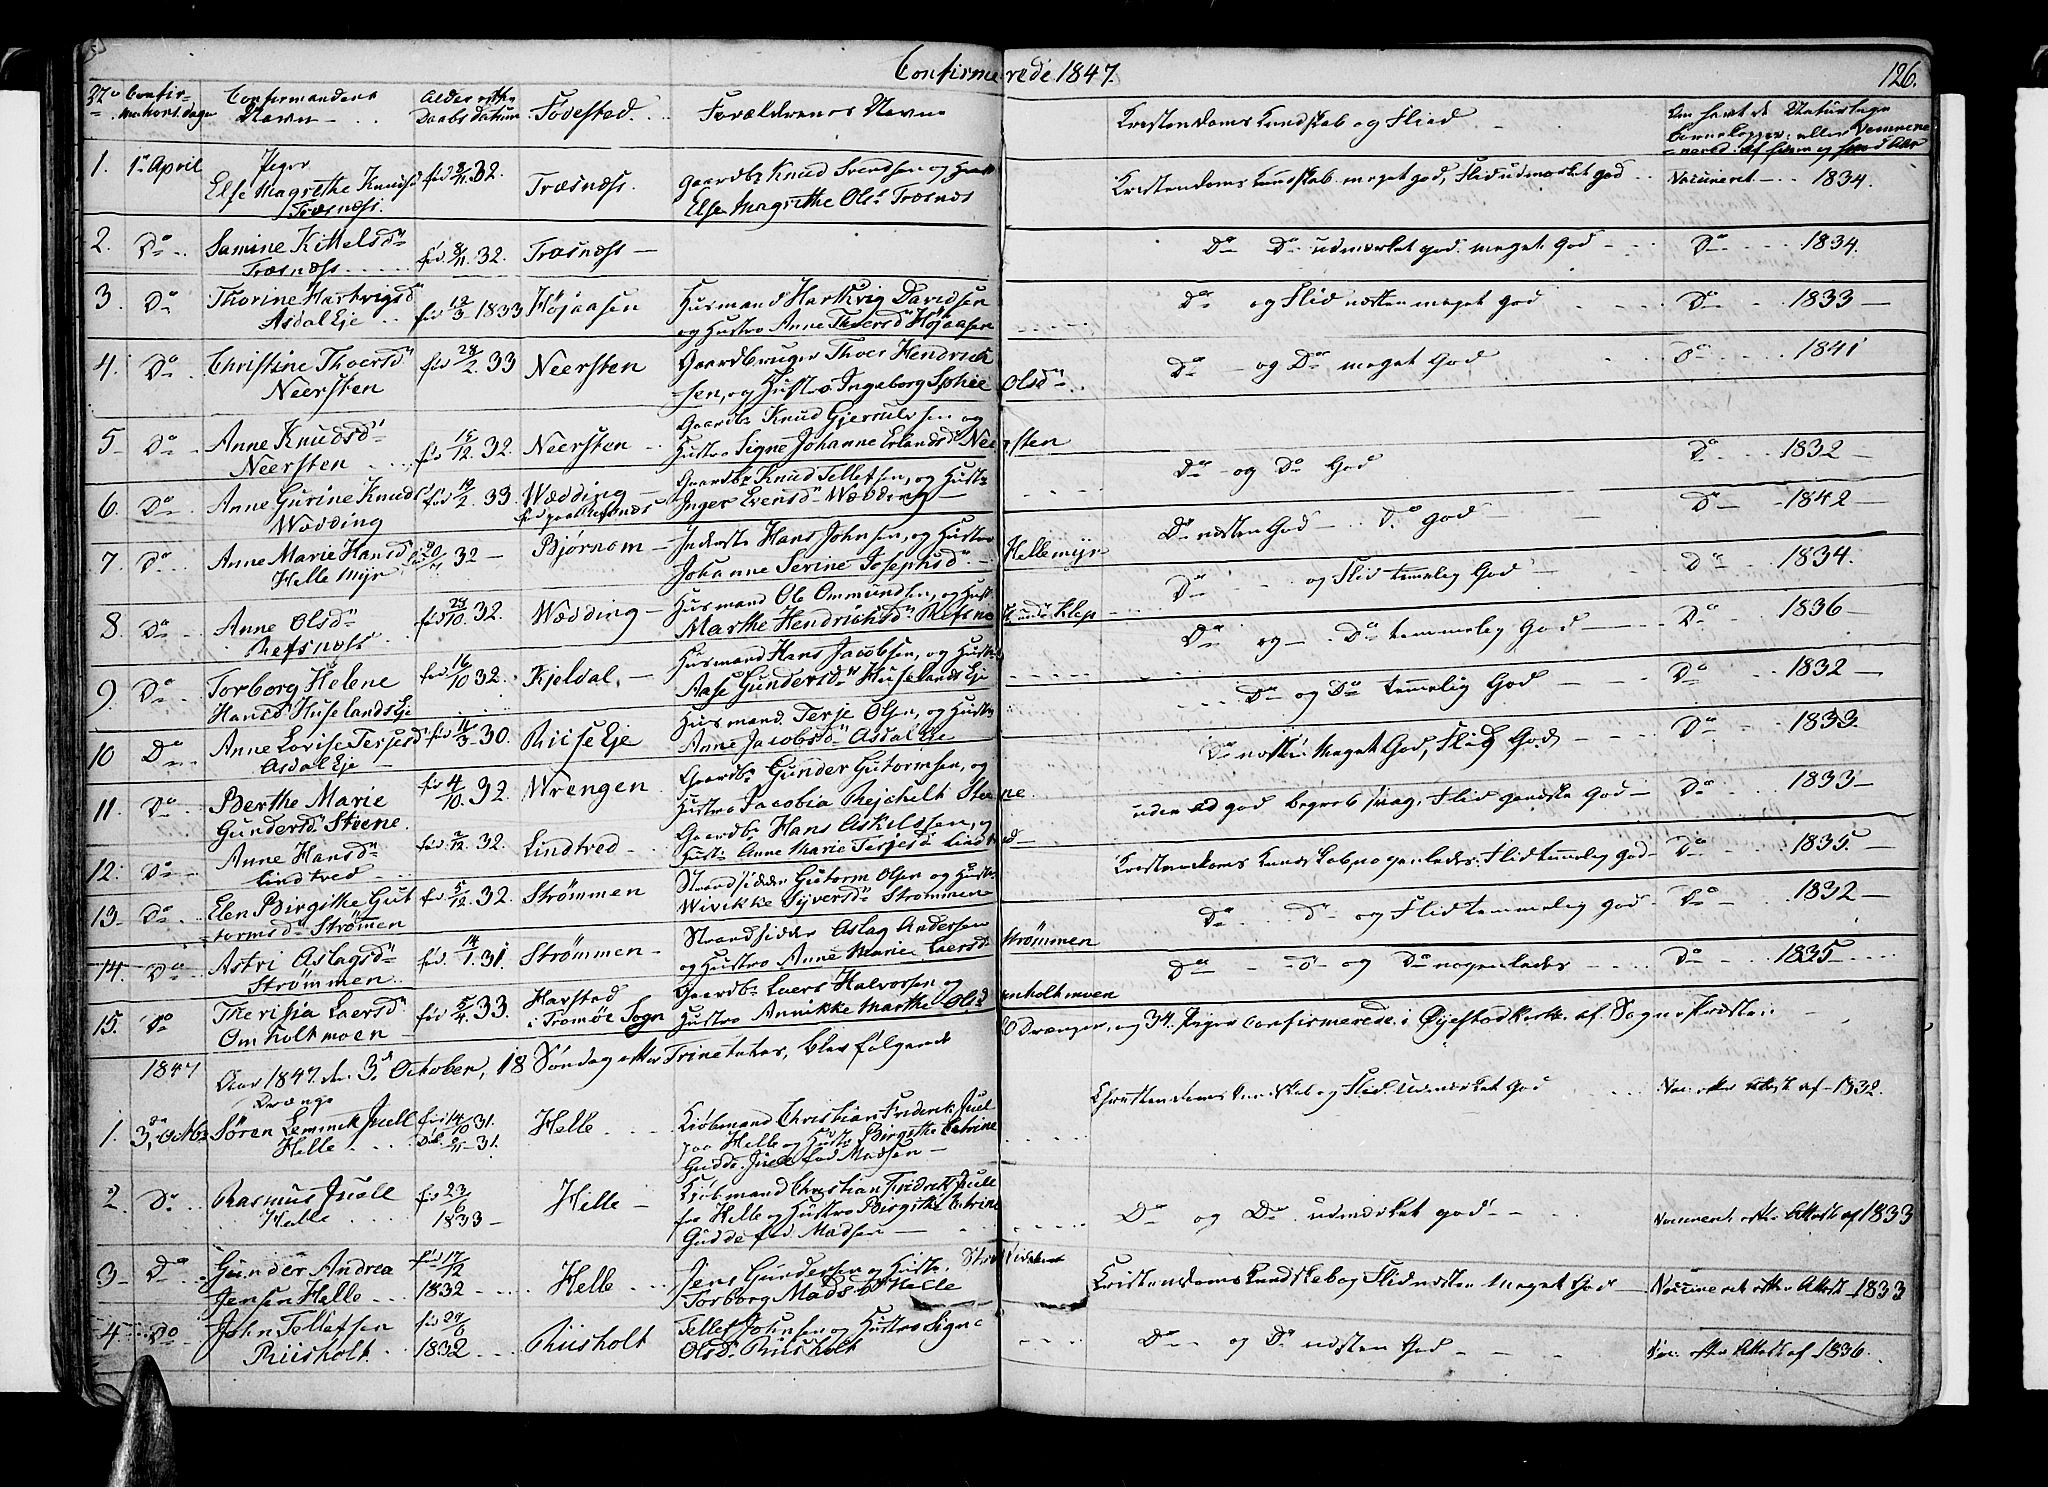 Confirmerede 1847.
126.
Confirmations dage
Confirmandens Navn
Alder efter Daabs datum
Fødested.
Forældrenes Navne
Kristendoms Kundskab og Flid
1. 1ste April
Piger
Else Magrethe Knudsd Træsnæss.
fød 32.
Træsnæss.
Gaardbr Knud Svendsen og
Else Magrethe Olsd Træsnæs
Kristendoms Kundskab meget god, Flid udmærket god
Vaccineret 1834.
2. Do
Samine Kittelsd
Træsnæss
fød 32.
Træsnæss
Do Do udmærket god meget God
Do 1834.
3. Do
Thorine Hartvigsd
Asdal Eje
fød 12/3 1833
Højaasen
Husmand Harthvig Davidsen
og Hustro Anne Thoersd Højaasen
Do og Flid næsten meget god
Do 1833
4. Do
Christine Thoersd
Neersten
fød 28/2 33
Neersten
Gaardbruger Thoer Hendrick
sen, og Hustro Ingeborg Sophie Olsd
Do og Do meget God
Do 1841
5 Do
Anne Knudsd
Neersten
fød 15/12 32.
Neersten
Gaardbr Knud Gjerrulvsen og
Hustro Signe Johanne Erlandsd Neersten
Do og Do God
Do 1832
6. Do
Anne Gurine Knuds
Wædding
fød 19/2 33.
Wædding
Gaardbr Knud Tellefsen, og Hustr
Inger Evensd Wædding
Do næsten God Do god
Do 1842
7. Do
Anne Marie Hansd
Helle Myr
32
Bjørnom
Inderste Hans Johnsen, og Hustro
Johanne Serine Josephsd Hellemyr
Do og Flid temmelig God
Do 1834.
8. Do
Anne Olsd
Refsnæs
fød 28/10 32.
Wædding
Husmand Ole Ommundsen, og Hust
Marthe Hendrichsd Refsnæs
Do og Do temmelig God
Do 1836
9. Do
Torborg Helene
Hansd Huselands Eje
fød 16/10 32.
Kjeldal.
Husmand Hans Jacobsen, og Hustro
Aase Gundersd Huselands Eje
Do og Do temmelig God
Do 1832
10 Do
Anne Lovise Terjesd
Asdal Eje
fød 11/3 30.
Riise Eje
Husmand Terje Olsen, og Hustro
Anne Jacobsd Asdal Eje
Do næsten Meget God, Flid God
Do 1833.
11. Do
Berthe Marie
Gundersd Steene.
fød 4/10 32.
Wrengen
Gaardbr Gunder Gutormsen, og
Hustro Jacobia Rejchelt Steene
Do 1833
12. Do
Anne Hansd
Lindtved
fød 2/12 32.
Lindtved
Gaardbr Hans Askilsen, og
Hust. Anne Marie Terjesd Lindtved
Kristendoms Kundskab nogenledes Flid temmelig god
Do 1835.
13 Do
Elen Birgithe Gut
tormsd Strømmen
fød 5/12 32.
Strømmen
Strandsidder Gutorm Olsen og Hustr
Wivikke Syversd Strømmen
Do Do og Flid temmelig god
Do 1832
14. Do
Astri Aslagsd
Strømmen
fød. 14/1 31.
Strømmen
Strandsidder Aslag Andersen
og Hustro Anne Marie Laersd Strømmen
Do Do og Do nogenledes
Do 1835
15. Do
Therisia Laersd
Omholtmoen
fød 5/4 33.
Harstad
i Tromøe Sogn
Gaardbr Laers Halvorsen og
Hustro Annikke Marthe Olsd Omholtmoen
1847
Aar 1847. den 3d October, 18 Søndag efter Trinitatis, blev følgende
Drænger, og 34 Piger confirmerede i Øjestad Kirke af Sogne Præsten
Drænge
1. 3d Octbr
Søren Lemmik Juell
Helle
fød 14/10 31.
Helle
Kiøbmand Christian Frederik Juel
paa Helle og Hustr Birgithe Catrine
Gudde Juell fød Madsen
Christendoms Kundskab og Flid Udmærket God
Vac. efter Attest af 1832.
2. Do
Rasmus Juell
Helle
fød 23/6
1833
Helle
Kjøbmand Christian Fridrik Juell
paa Helle og Hustro Birgithe Catrine
Gudde fød Madsen
Do og Do udmærket god
Vaccineret efter Attest af 1833
3 Do
Gunder Andrea
Jensen Helle
fød 17/12
1832
Helle
Jens Gundersen og Hustr.
Torborg Madsd Helle
Kristendoms Kundskab og Flid næsten Meget God
Vaccineret efter Attest 1833
4 Do
John Tellefsen
Riisholt.
1832
Riisholt
Tellef Johnsen og Hustro Signe
Olsd. Riisholt
Do og Do næsten God
Vac. efter Attest af 1836.